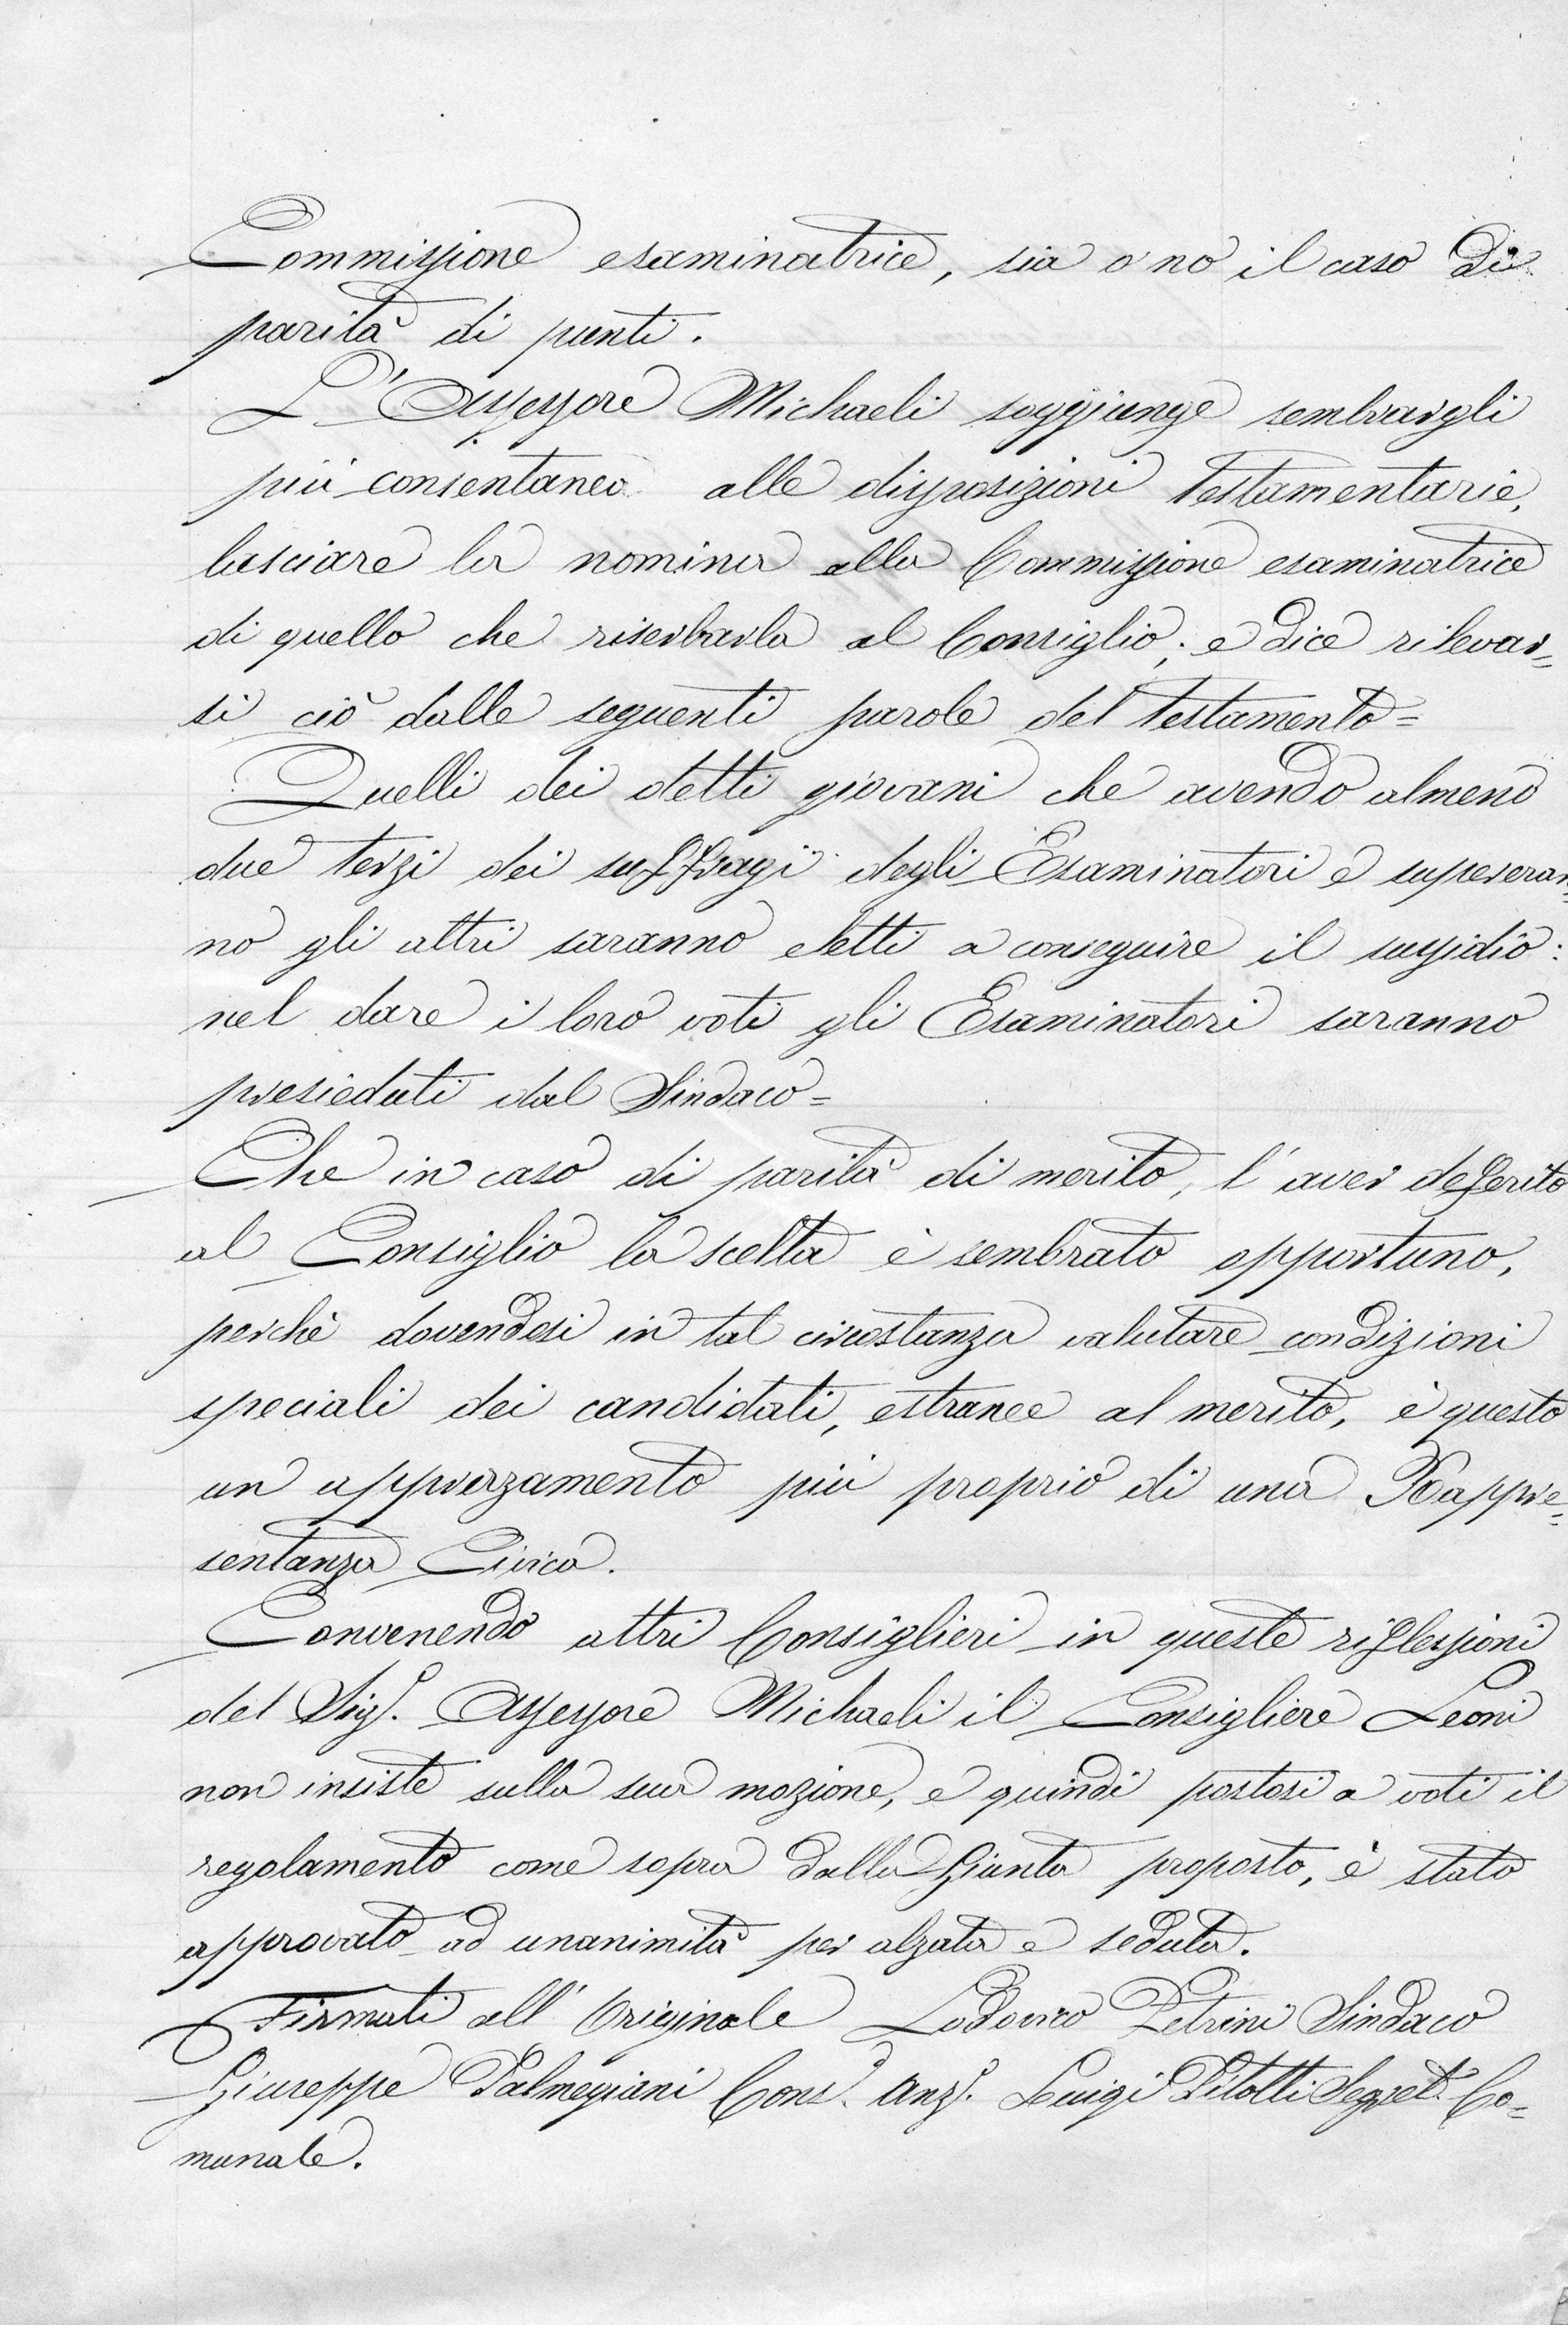 Commissione esaminatrice, sia o no il caso di
parità di punti.
L'Assessore Michaeli soggiunge sembrargli
più consentaneo alle disposizioni testamentarie,
lasciare la nomina alla Commissione esaminatrice
di quello che riserbarla al Consiglio; e dice rilevar=
si ciò dalle seguenti parole del testamento=
Quelli dei detti giovani che avendo almeno
due terzi dei suffragi degli Esaminatori e superan=
no gli altri saranno eletti a conseguire il sussidio:
nel dare i loro voti gli Esaminatori saranno
presieduti dal Sindaco=
Che in caso di parità di merito, l'aver deferito
al Consiglio la scelta è sembrato opportuno,
perchè dovendosi in tal circostanza valutare condizioni
speciali dei candidati, estranee al merito, è questo
un apprezzamento più proprio di una Rappre=
sentanza Civica.
Convenendo altri Consiglieri in queste riflessioni
del Sigr. Assessore Michaeli il Consigliere Leoni
non insiste sulla sua mozione, e quindi postosi a voti il
regolamento come sopra dalla Giunta proposto, è stato
approvato ad unanimità per alzata e seduta.
Firmati all'Originale Lodovico Petrini Sindaco
Giuseppe Palmegiani Cons. Anz. Luigi Pitotti Segret. Co=
munale.